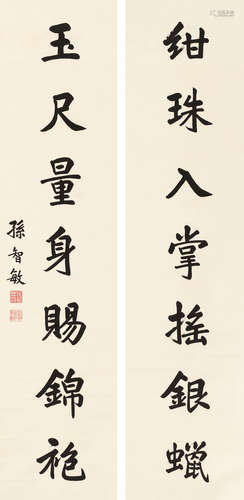 紺珠入掌搖銀蠟
玉尺量身賜錦袍
孫智敏